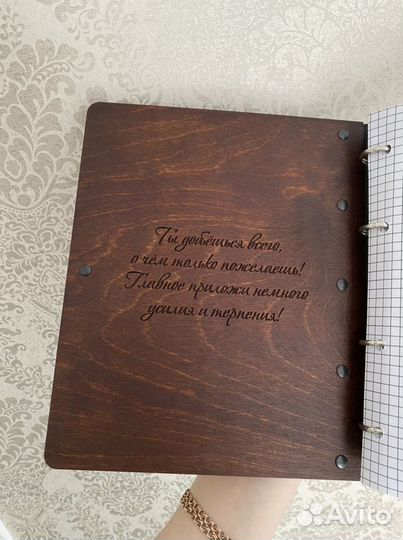 Ты добьёшься всего,
о чём только пожелаешь!
Главное приложи немного
усилия и терпения!
Avito